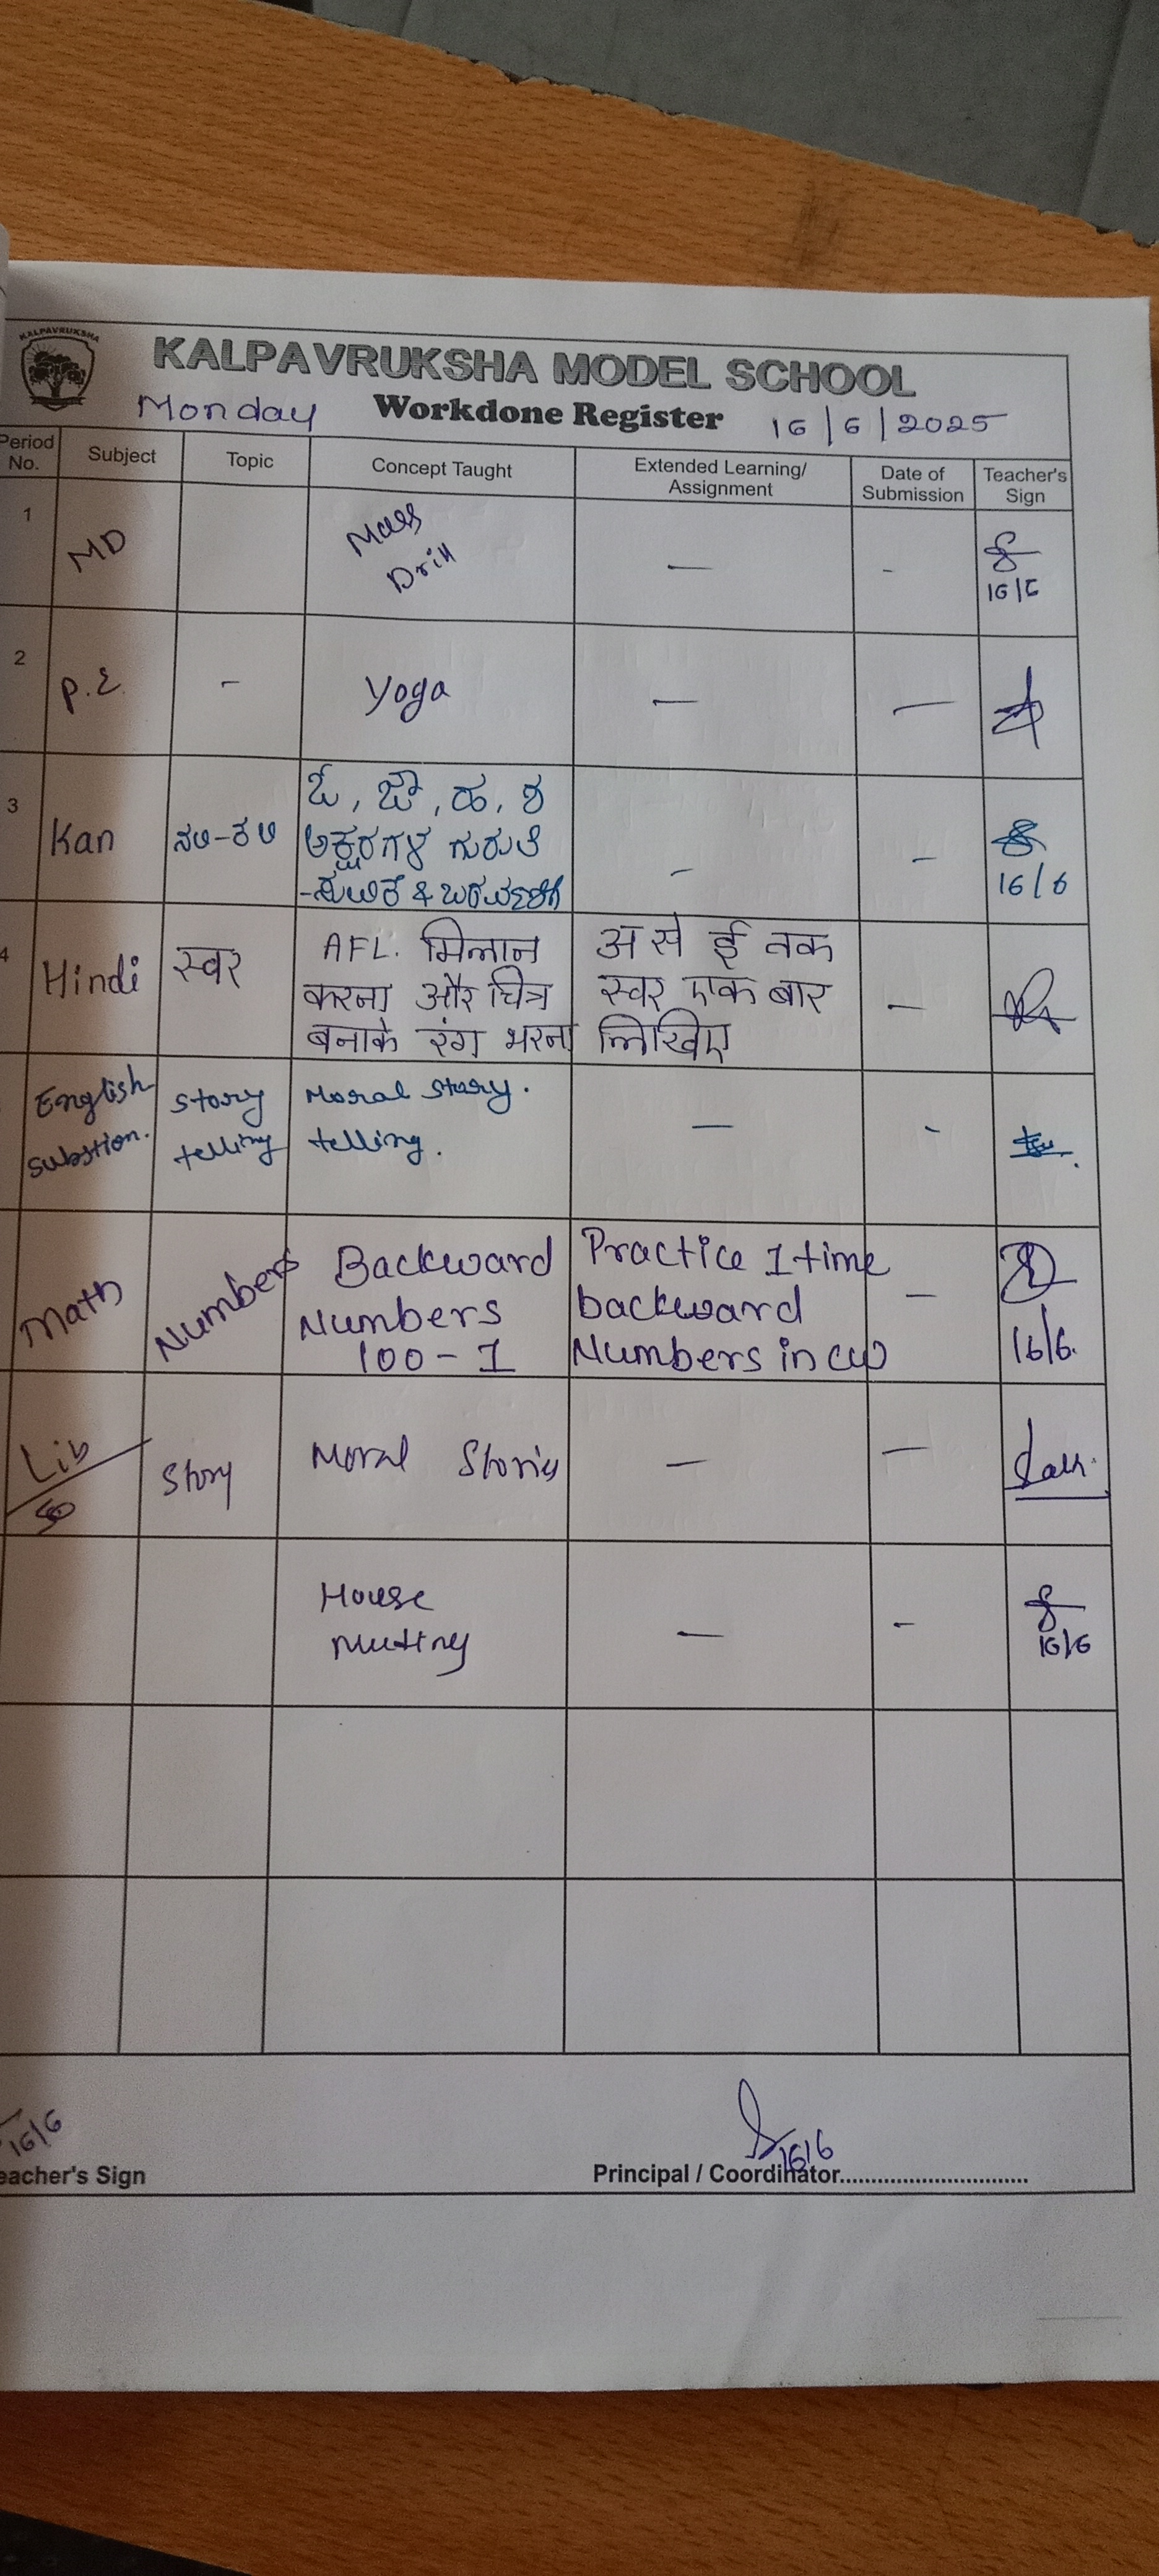 KALPAVRUKSHA
KALPAVRUKSHA MODEL SCHOOL
Monday Workdone Register 16/6/2025
Period No. Subject Topic Concept Taught Extended Learning/ Assignment Date of Submission Teacher's Sign
1 MD Mass Drill — - 16/6
2 P.E. - Yoga — —
3 Kan ನಲಿ-ಕಲಿ
ಅಕ್ಷರಗಳ ಗುರುತಿ
- - 16/6
4 Hindi स्वर AFL. मिलान अ से ई तक
करना और चित्र स्वर एक बार —
बनाके रंग भरना लिखिए
English Story Moral Story.
substion. telling telling. — -
Math Numbers Backward Practice 1 time
Numbers backward —
100-1 Numbers in cw 16/6.
Lib Story Moral Stories — —
House
Meeting — - 16/6
16/6 16/6
eacher's Sign Principal / Coordinator..............................